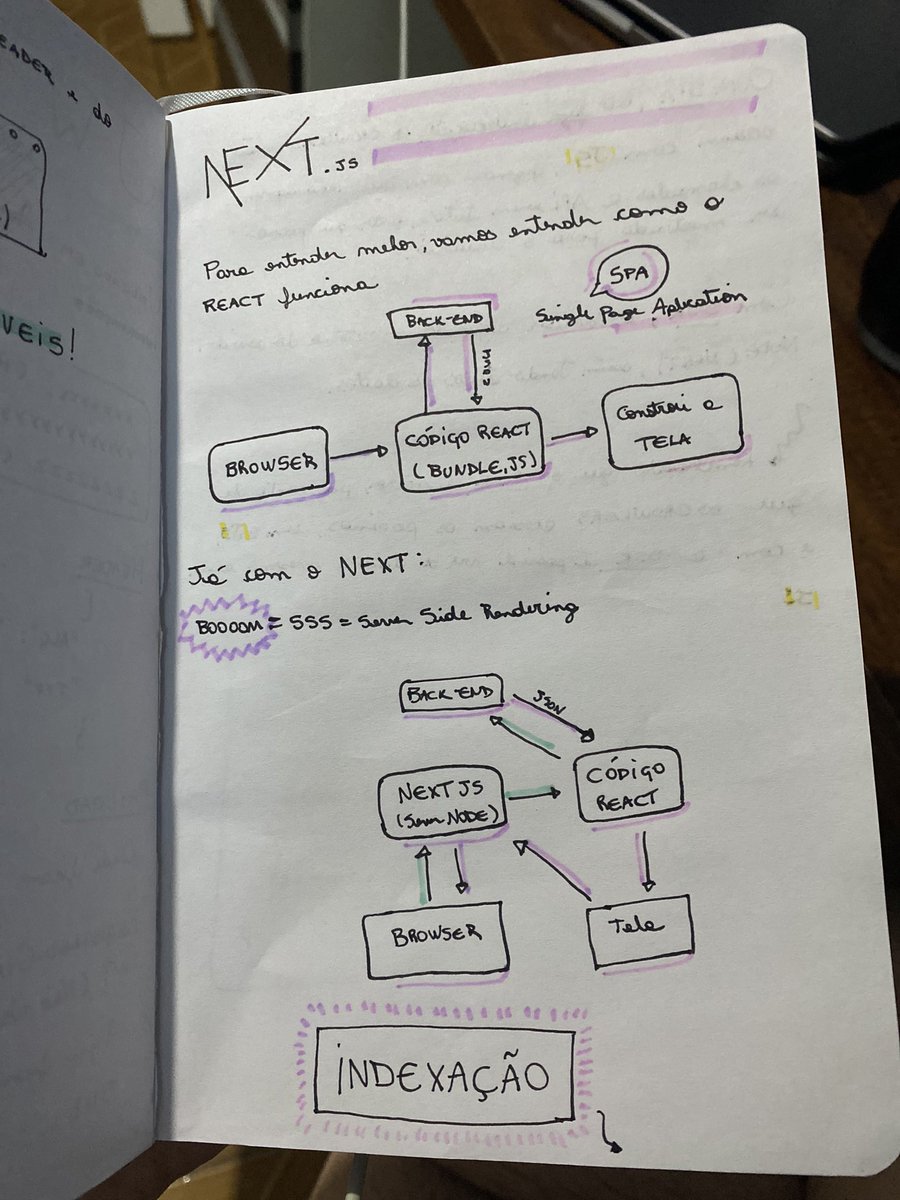 EADER e do
VEIS!
NEXT.JS
Para entender melhor, vamos entender como o
REACT funciona
SPA
Single Page Aplication
BACK-END
JSON
BROWSER
CÓDIGO REACT
(BUNDLE.JS)
Constroi a
TELA
Já com o NEXT:
BOOOOM = SSS = Server Side Rendering
BACK-END
JSON
NEXT JS
(Server NODE)
CÓDIGO
REACT
BROWSER
Tela
INDEXAÇÃO